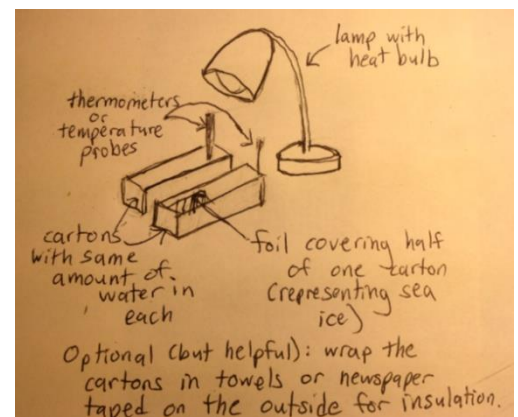 lamp with
heat bulb
thermometers
or
temperature
probes
cartons
with same
amount of
water in
each
foil covering half
of one carton
(representing sea
ice)
Optional (but helpful): wrap the
cartons in towels or newspaper
taped on the outside for insulation.